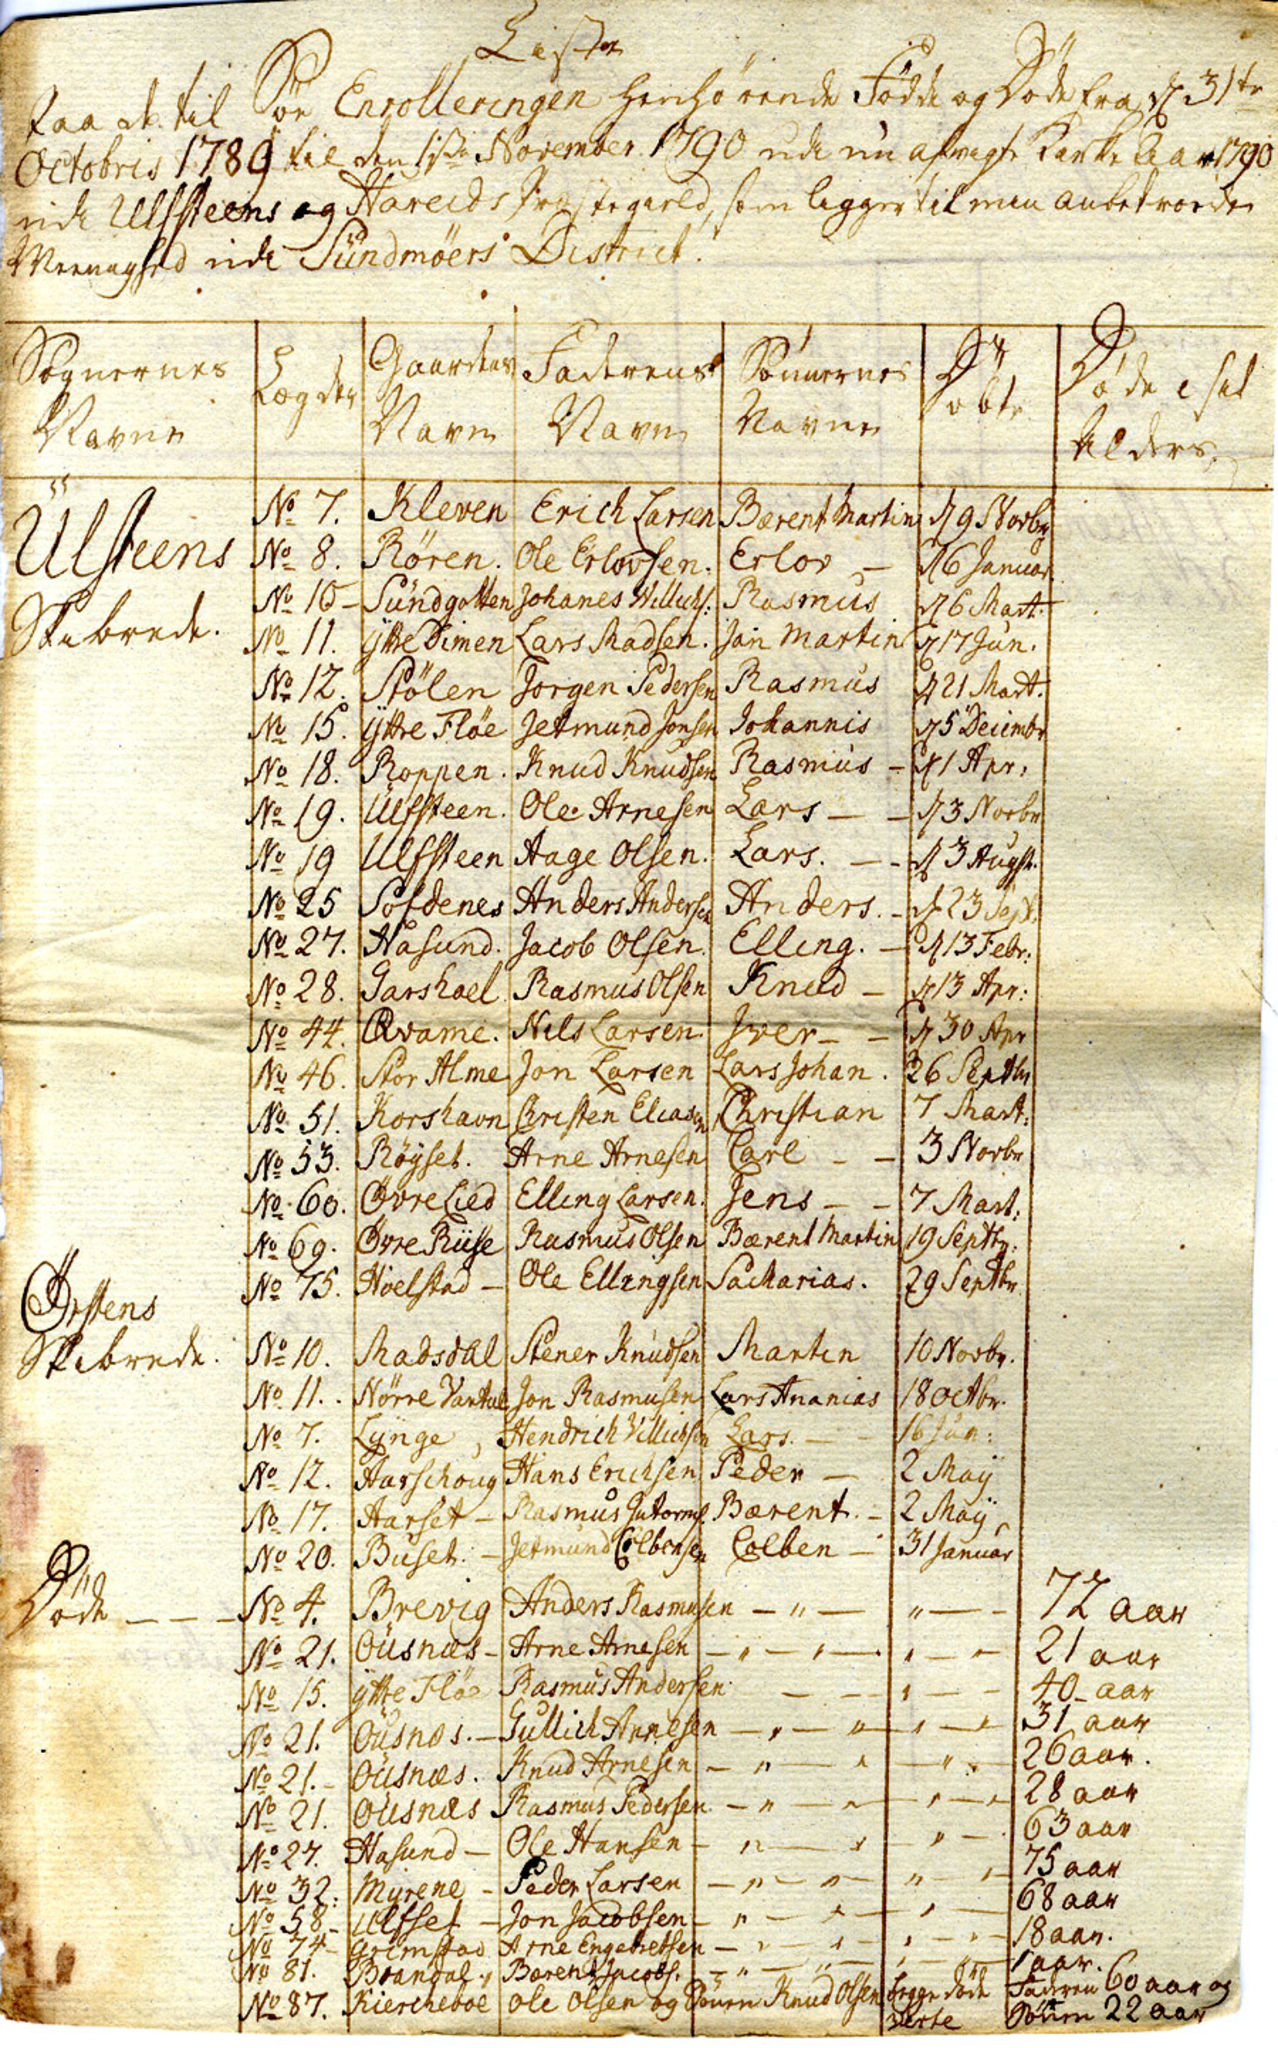 Liste
paa de til Söe Enrolleringen henhørende Fødde og Døde fra d 31te
Octobris 1789 til den 1ste November 1790 udi nu afvigte Kirke Aar 1790
udi Ulfsteens og Hareids Præstegield, som ligger til min anbetroede
Menighed udi Sündmöers District.
Sognernes Navne | Lægder | Gaardens Navn | Faderens Navn | Sønnernes Navne | Døbte | Døde i sit Alders
Ülsteens Skibrede. No 7. Kleven Erich Larsen Bærent Martin d 9 Novbr
No 8. Rören. Ole Erlovsen. Erlov — d 16 Januar
No 10 – Sündgotten Johanes Willichs: Rasmus d 6 Mart.
No 11. ÿtre Dimen Lars Madsen. Jan Martin d 17 Jun.
No 12. Stölen Jorgen Pedersen Rasmus d 21 Mart.
No 15. ÿtre Flöe Jetmund Jonsen Johannis d 5 Decembr
No 18. Roppen. Knud Knudsen Rasmus – d 1 Apr:
No 19. Ulfsteen. Ole Arnesen Lars — – d 3 Novbr
No 19 Ulfsteen Aage Olsen. Lars. — – d 3 Augst.
No 25 Sofdenes Anders Andersen Anders. – d 23 Sept.
No 27. Hasund. Jacob Olsen. Elling. — d 13 Febr:
No 28. Garshoel Rasmus Olsen Knud – d 13 Apr:
No 44. Qvame. Nils Larsen Iver – – d 30 Apr
No 46. Stor Alme Jon Larsen Lars Johan. 26 Septbr
No 51. Korshavn Christen Eliasen Christian 7 Mart:
No 53. Röyset. Arne Arnesen Carl – – 3 Novbr
No 60. Övre Lied Elling Larsen. Jens – – 7 Mart:
No 69. Övre Riise Rasmus Olsen Bærent Martin 19 Septbr.
No 75. Hoelstad – Ole Ellingsen Sacharias. 29 Septbr.
Örstens
Skibrede. No 10. Madsdal Stener Knudsen Martin 10 Novbr.
No 11. Nörre Vartdal Jon Rasmusen Lars Ananias 18 Octbr.
No 7. Lÿnge, Hendrich Villichsen Lars. — 16 Jun:
No 12. Aarschoug Hans Erichsen Peder — 2 Maÿ
No 17. Aarset – Rasmus Gutorms Bærent. – 2 Maÿ
No 20. Buset. – Jetmund Colbensen Colben — 31 Januar
Döde – – – No 4. Brevig Anders Rasmusen – " — " — – 72 aar
No 21. Öusnæs – Arne Arnesen – " – " — " – " 21 aar
No 15. ÿtre Flöe Rasmus Andersen – – – " – – 40 aar
No 21. Öusnæs. – Gullich Arnesen – " – " – " – " 31 aar
No 21. – Öusnæs. Knud Arnesen – " – " – " – 26 aar.
No 21. Öusnæs Rasmus Pedersen – " – " – " – " 28 aar
No 27. Hasund – Ole Hansen – " — " " – 63 aar
No 32. Mÿrene – Peder Larsen – " – " – " – " 75 aar
No 58 – Ulfset – Jon Jacobsen – " – " – " – 68 aar
No 74 – Grimstad Arne Engebretsen – " – " – " – " 18 aar.
No 81. Brandal. Barent Jacobs. – " – " – " – " 1 aar.
No 87. Kiercheboe Ole Olsen og Sönen Knud Olsen begge döde Faderen 60 aar og
Sönen 22 aar
verte